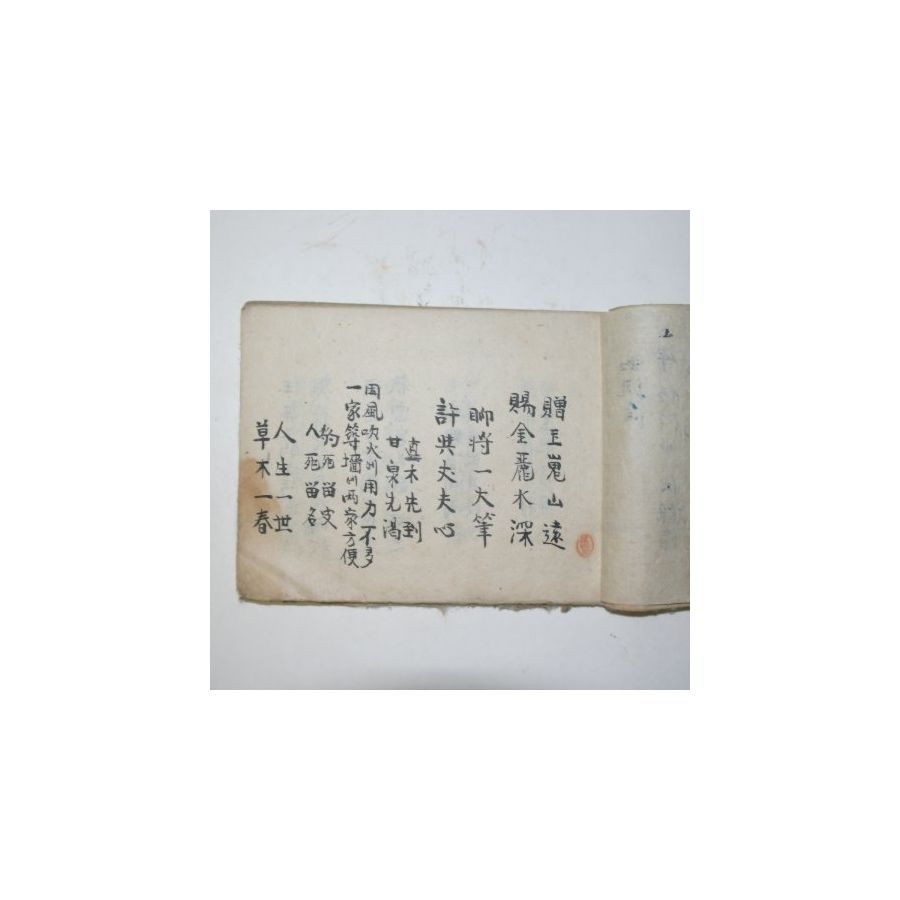 贈玉嵬山遠
賜金麗水深
聊将一大筆
許其丈夫心
直木先到
甘泉先渴
因風吹火用力不多
一家築墻两家方便
豹死留皮
人死留名
人生一世
草木一春